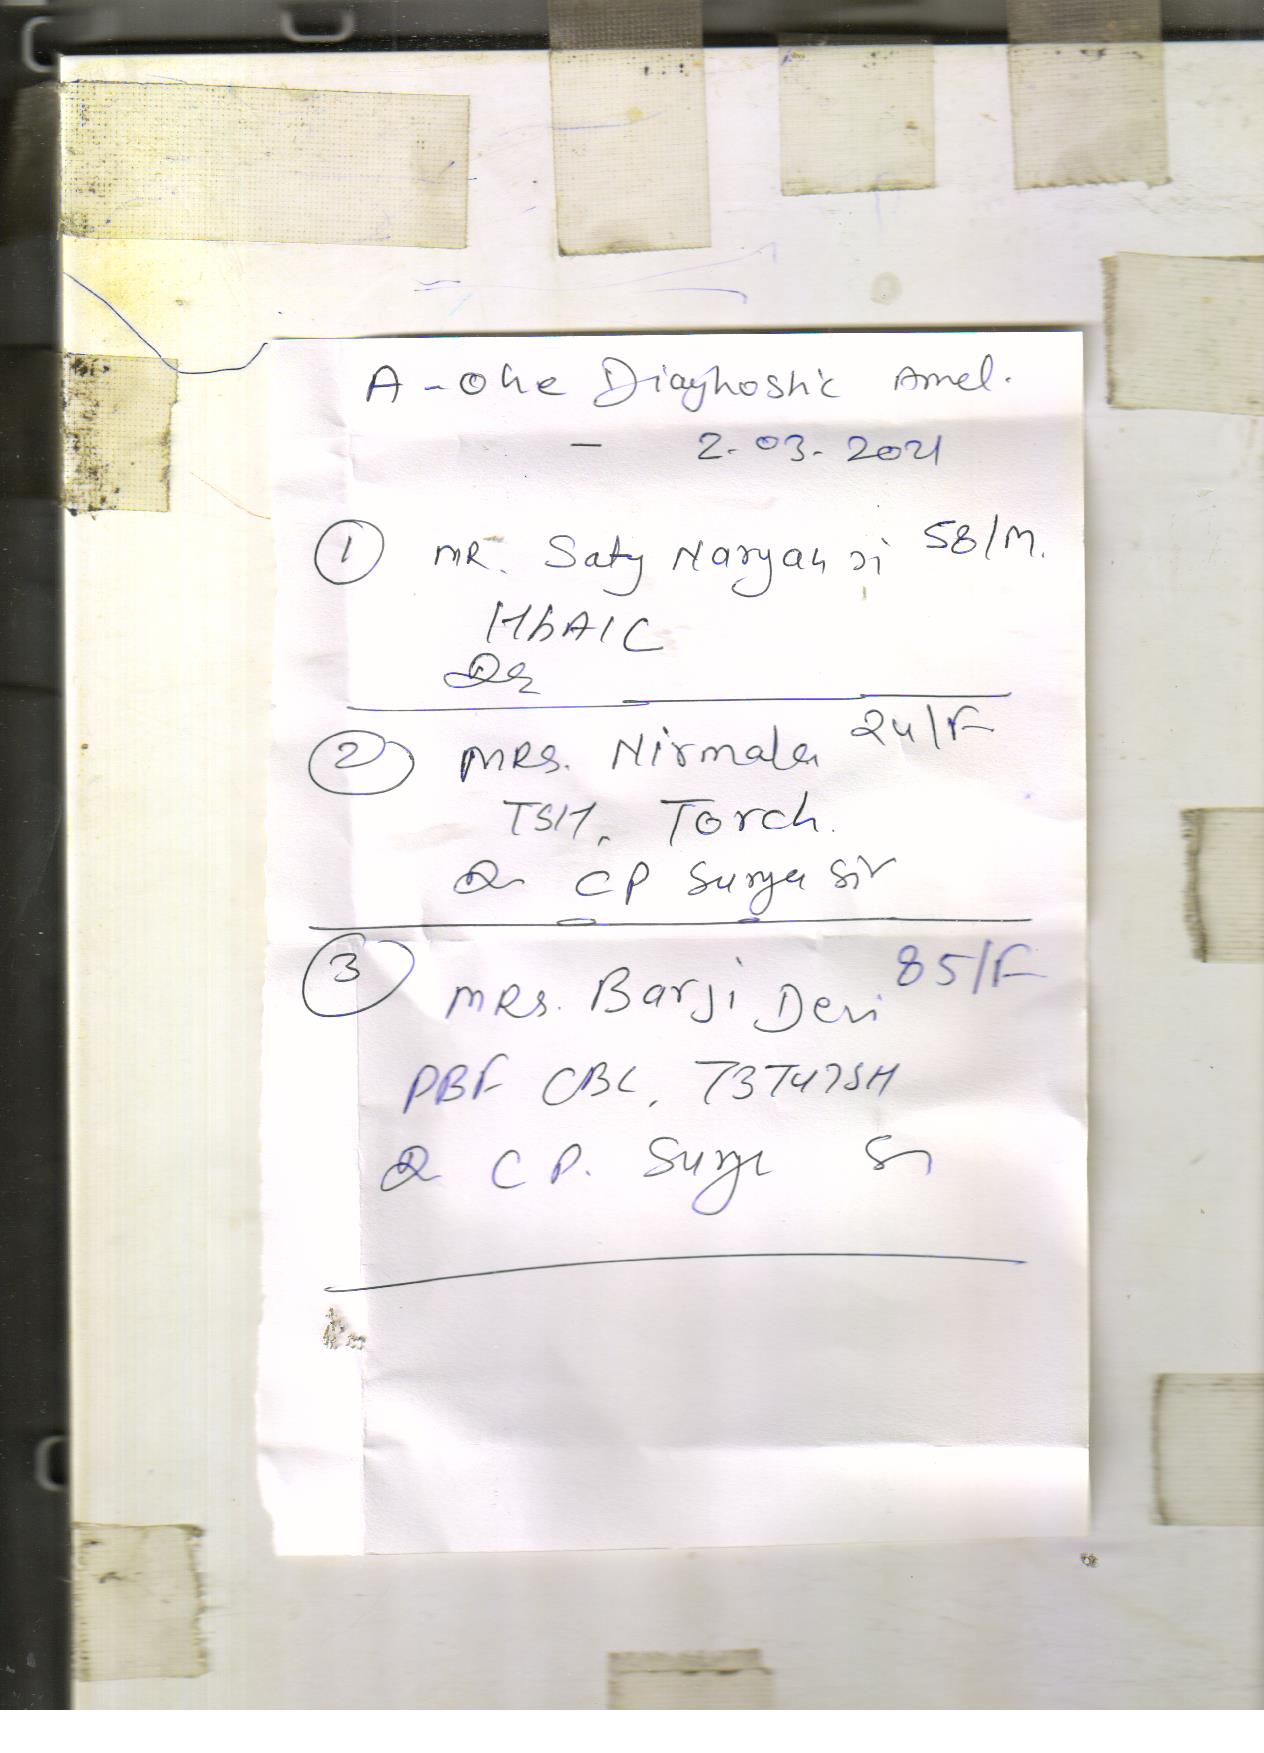 A-One Diagnostic Amet.
- 2.03.2021
1 MR. Saty Naryan Ji 58/M.
HbA1C
Dr
2 MRS. Nirmala 24/F
TSH, Torch.
Dr CP Surya Sir
3 MRS. Barji Devi 85/F
PBF CBC, T3T4TSH
Dr C P. Surya Sr